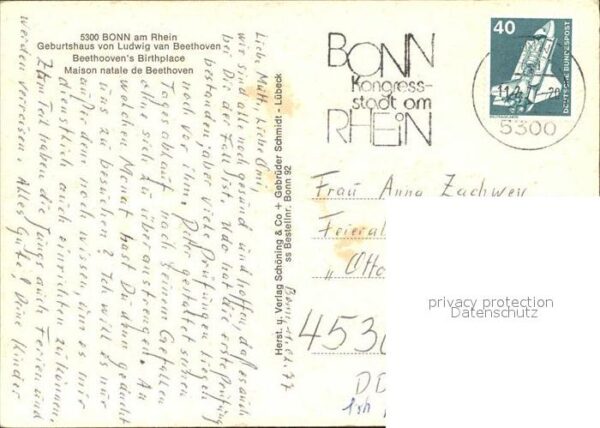 5300 BONN am Rhein
Geburtshaus von Ludwig van Beethoven
Beethooven's Birthplace
Maison natale de Beethoven
BONN
Kongress-
stadt am
RHEIN
40
DEUTSCHE BUNDESPOST
5300
Herst. u. Verlag Schöning & Co + Gebrüder Schmidt - Lübeck
ss Bestellnr. Bonn 92
Liebe Mutti, Liebe Omi,
wir sind alle noch gesund und hoffen, daß es auch
bei Dir der Fall ist. Udo hat die erste Prüfung
bestanden, aber viele Prüfungen
noch vor ihm. Peter gestaltet seinen
Tagesablauf nach seinem Gefallen
ohne sich zu überanstrengen. An
welchen Monat hast Du denn gedacht
uns zu besuchen? Ich will es nur
außerdem noch wissen, um es mir
dienstlich auch einrichten zu können.
Zum Teil haben die Jungs auch Ferien und
werden verreisen. Alles Gute! Deine Kinder
Frau Anna Zachwey
"Otto
privacy protection
Datenschutz